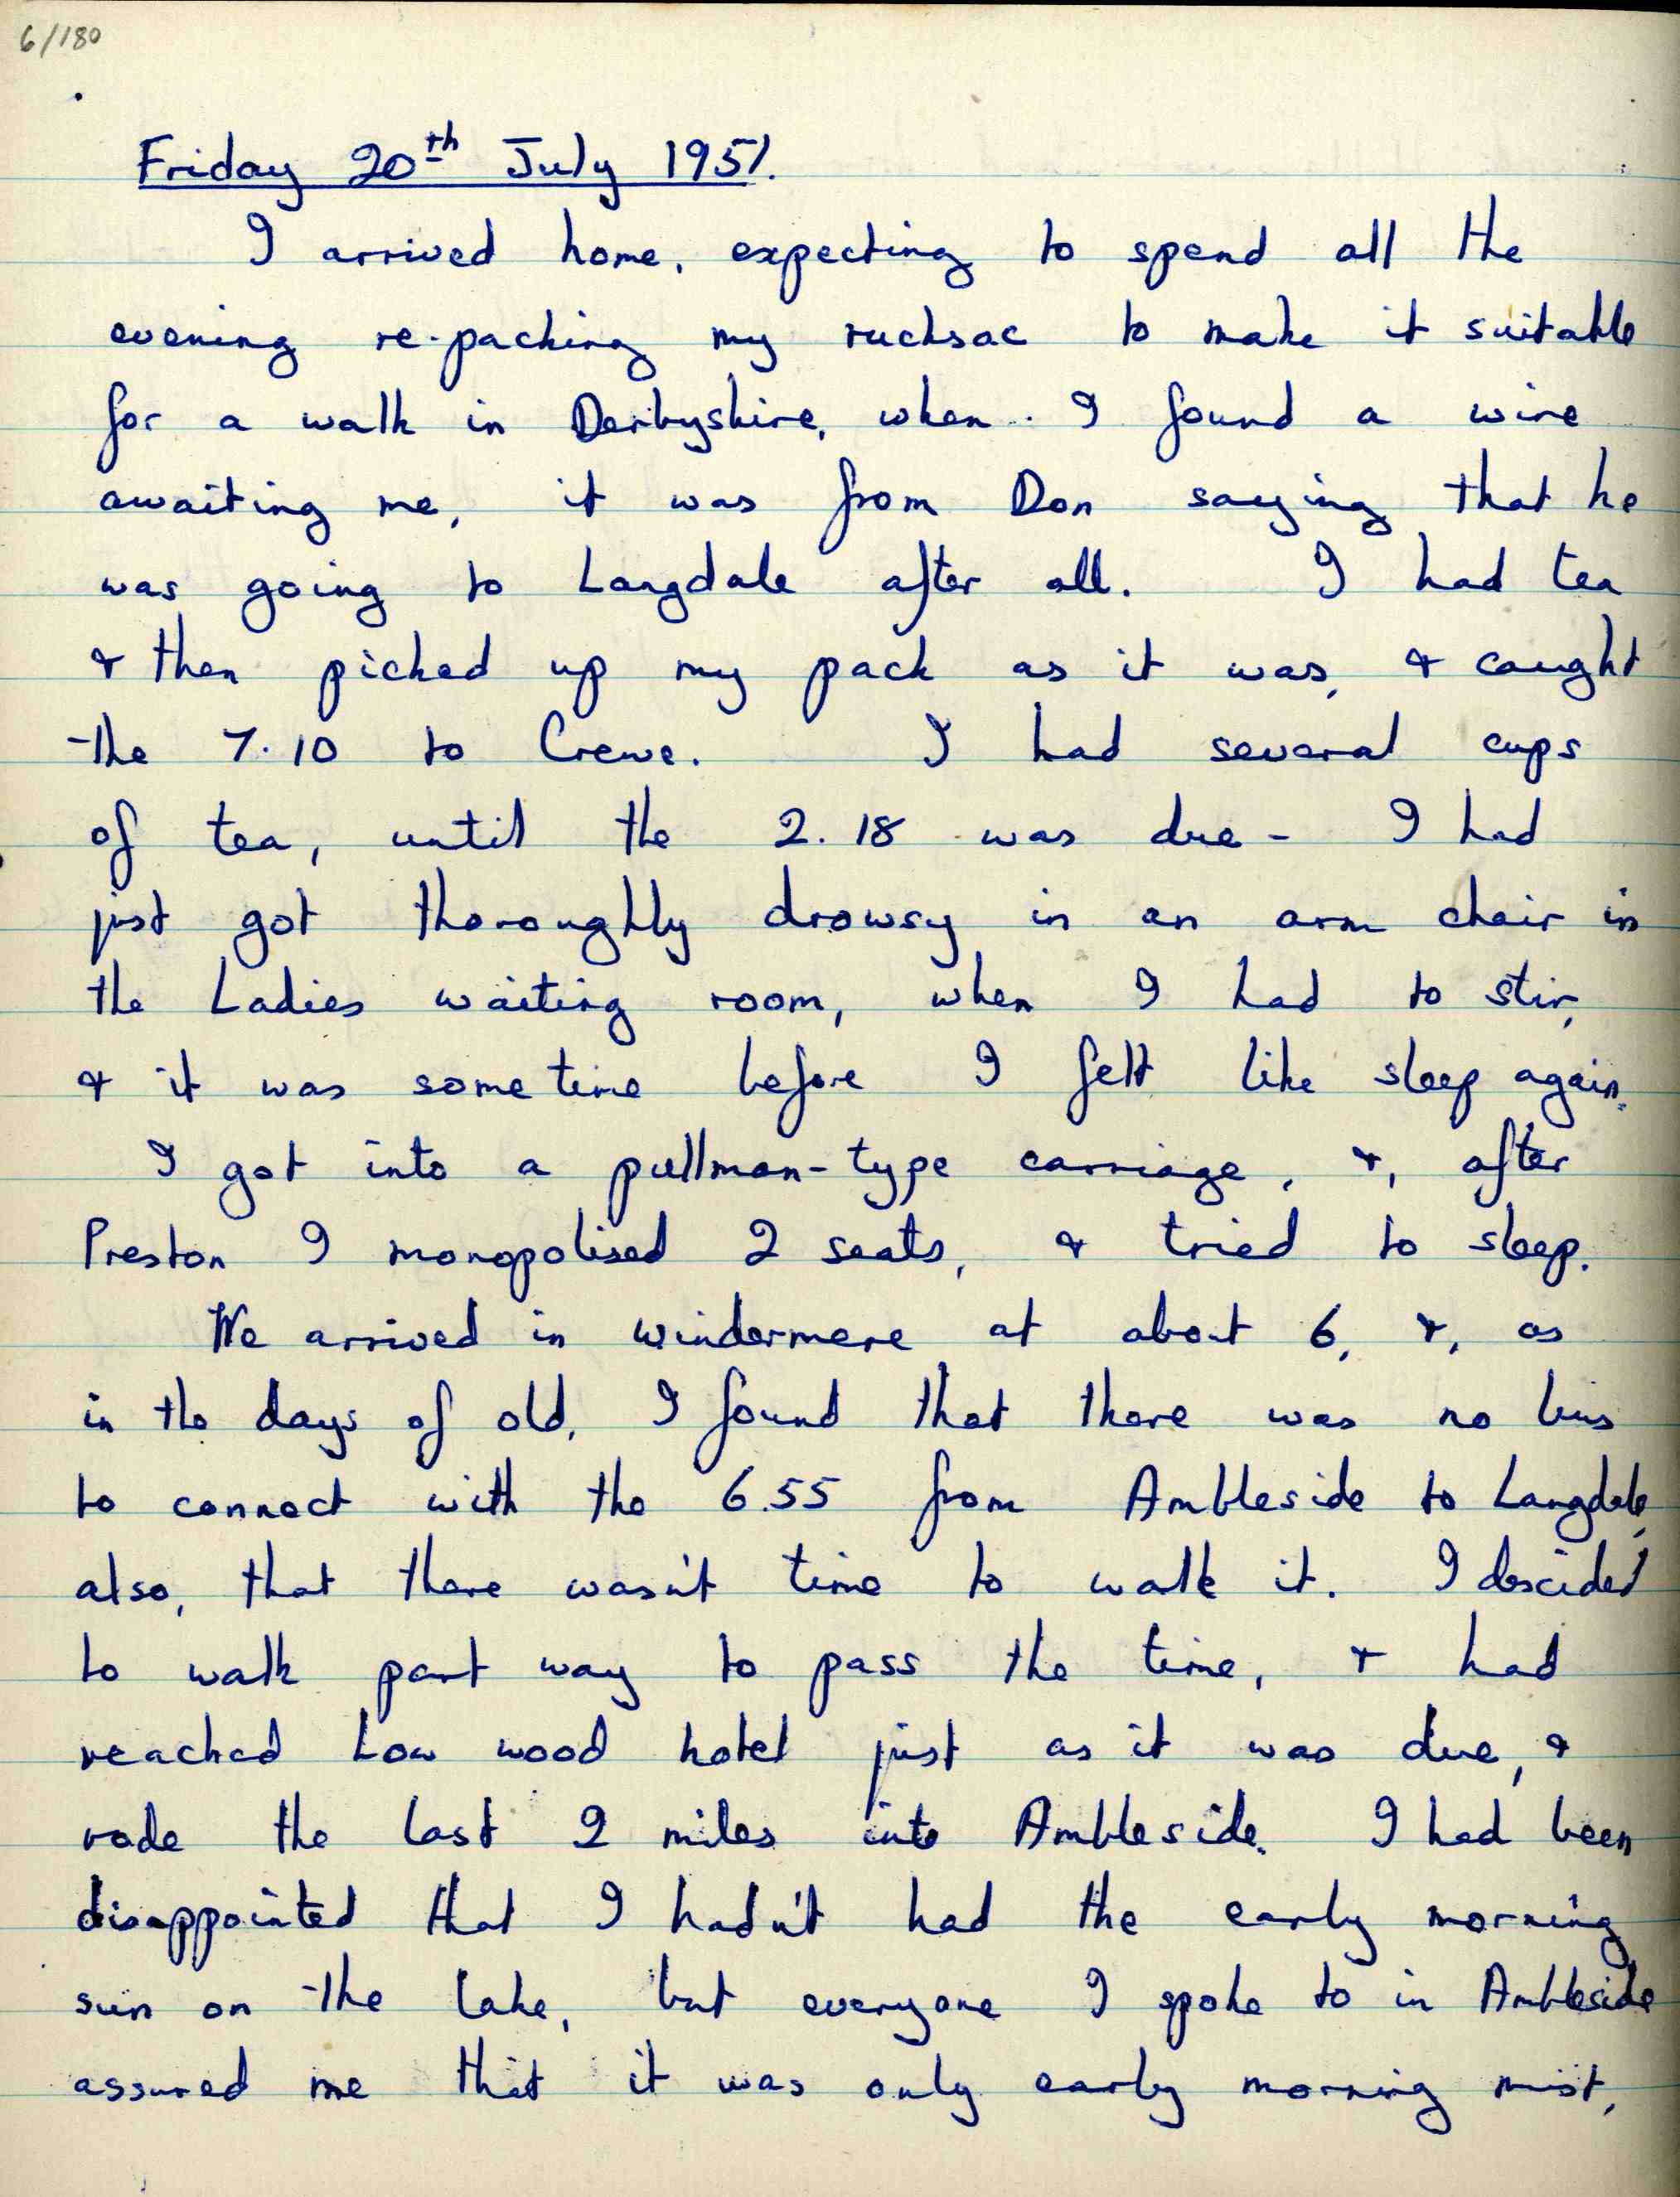 6/180
Friday 20th July 1951.
I arrived home, expecting to spend all the
evening re-packing my rucksac to make it suitable
for a walk in Derbyshire, when I found a wire
awaiting me, it was from Don saying that he
was going to Langdale after all. I had tea
& then picked up my pack as it was, & caught
the 7.10 to Crewe. I had several cups
of tea, until the 2.18 was due - I had
just got thoroughly drowsy in an arm chair in
the Ladies waiting room, when I had to stir,
& it was some time before I felt like sleep again.
I got into a pullman-type carriage, &, after
Preston I monopolised 2 seats, & tried to sleep.
We arrived in Windermere at about 6, &, as
in the days of old, I found that there was no bus
to connect with the 6.55 from Ambleside to Langdale,
also, that there wasn't time to walk it. I decided
to walk part way to pass the time, & had
reached Low wood hotel just as it was due, &
rode the last 2 miles into Ambleside. I had been
disappointed that I hadn't had the early morning
sun on the lake, but everyone I spoke to in Ambleside
assured me that it was only early morning mist,